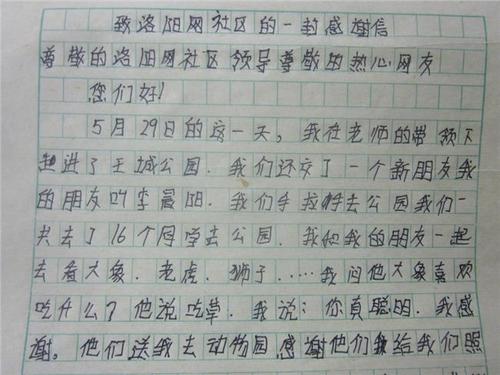 致洛阳网社区的一封感谢信
尊敬的洛阳网社区领导尊敬的热心网友
您们好!
5月29日的这一天。我在老师的带领下
走进了王城公园.我们还交了一个新朋友我
的朋友叫李晨阳.我们手拉手去公园我们一
共去了16个同学去公园.我和我的朋友一起
去看大象.老虎.狮子......我问他大象喜欢
吃什么?他说吃草.我说:你真聪明.我感
谢。他们送我去动物园感谢他们给我们照